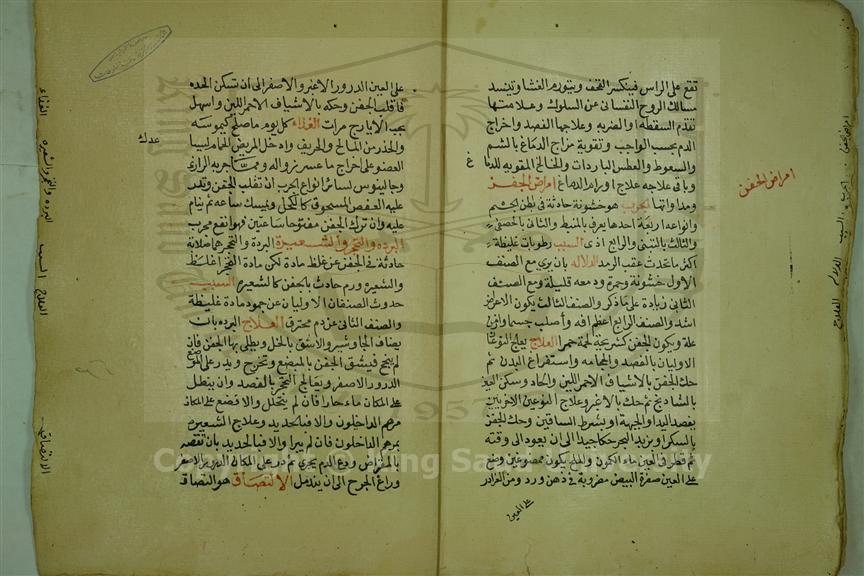 تقع على الراس فينكسر القحف ويتورم الغشا وتنسد
مسالك الروح النفساني عن السلوك وعلامتها
تقدم السقطه او الضربه وعلاجها الفصد واخراج
الدم بحسب الواجب وتقوية مزاج الدماغ بالشم
والسعوط والعطس الباردات والخالخ المقويه للدماغ
وباقي علاجه علاج اورام الدماغ امراض الجفن
ومداواتها الجرب هو خشونة حادثة في بطن الجفن
وانواعه اربعة احدها يعرف بالمنبسط والثاني بالحصفي
والثالث بالتيني والرابع السبب رطوبات غليظة
اكثر ما تحدث عقب الرمد الدلاله بان يري مع الصنف
الاول خشونة وحمرة ودمعه قليلة ومع الصنف
الثاني زيادة على ما ذكر والصنف الثالث يكون الاعراض
اشد والصنف الرابع اعظم افه واصلب جسما
علة ويكون الجفن العلاج يعالج النوعان
الاوليان بالفصد والحجامه واستفراغ البدن ثم
حك الجفن بالاشياف الاحمر اللين والحاد
ثم حك بالاغبر وعلاج النوعين الاخريين
بفصد اليد والجبهة او بشرط الساقين وحك الجفن
بالسكر او بزبد البحر حكا جيدا الى ان يعود الى رقته
ثم قطر في العين ماء الكمون والملح يكون ممضوغين وضع
على العين صفرة البيض مضروبة في دهن ورد ومن الغد ادر
على العين
امراض الجفن
امراض الجفن
الجرب
السبب
الدلاله
العلاج
على العين الدرور الاغبر والاصفر الى ان تسكن الحده
فاقلب الجفن وحكه بالاشياف الاحمر اللين واسهل
بحب الايارج مرات الغذاء كل يوم ما صلح كيموسه
والحذر من المالح والحريف وادخل المريض الحمام ليبا
العضو على اخراج ما عسر زواله ومما جربه الرازي
وجالينوس لسائر انواع الجرب ان تقلب الجفن وتذر
عليه العفص المسحوق كالكحل ويمسك ساعه ثم ينام
عليه وان ترك الجفن مفتوحا ساعتين فهو انفع مجرب
البرده والتحجر والشعيرة البردة والتحجر هما صلابة
حادثة في الجفن عن غلظ مادة لكن مادة التحجر اغلظ
والشعيره ورم حادث بالجفن كالشعيره السبب
حدوث الصنفان الاوليان عن جمود مادة غليظة
والصنف الثاني عن دم محترق العلاج البرده بان
يضاف الجاوشير والاشق بالخل ويطلى بها الجفن فان
لم ينجح فيشق الجفن بالمبضع وتخرج ويذر على الموضع
الدرور الاصفر ويعالج التحجر بالفصد وان ينطل
على المكان ماء حارا فان لم يتحلل والا فضع على المكان
مرهم الداخلون والا فبالحديد وعلاج الشعيره
بمرهم الداخلون فان لم يبرا والا فبالحديد بان تقصه
بالمقراض ودع الدم يجري ثم ذر على المكان الدرور الاصفر
وراع الجرح الى ان يندمل الالتصاق هو التصاق
الغذاء
البرده والتحجر والشعيره
السبب
العلاج
الالتصاق
Copyright © King Saud University
1957